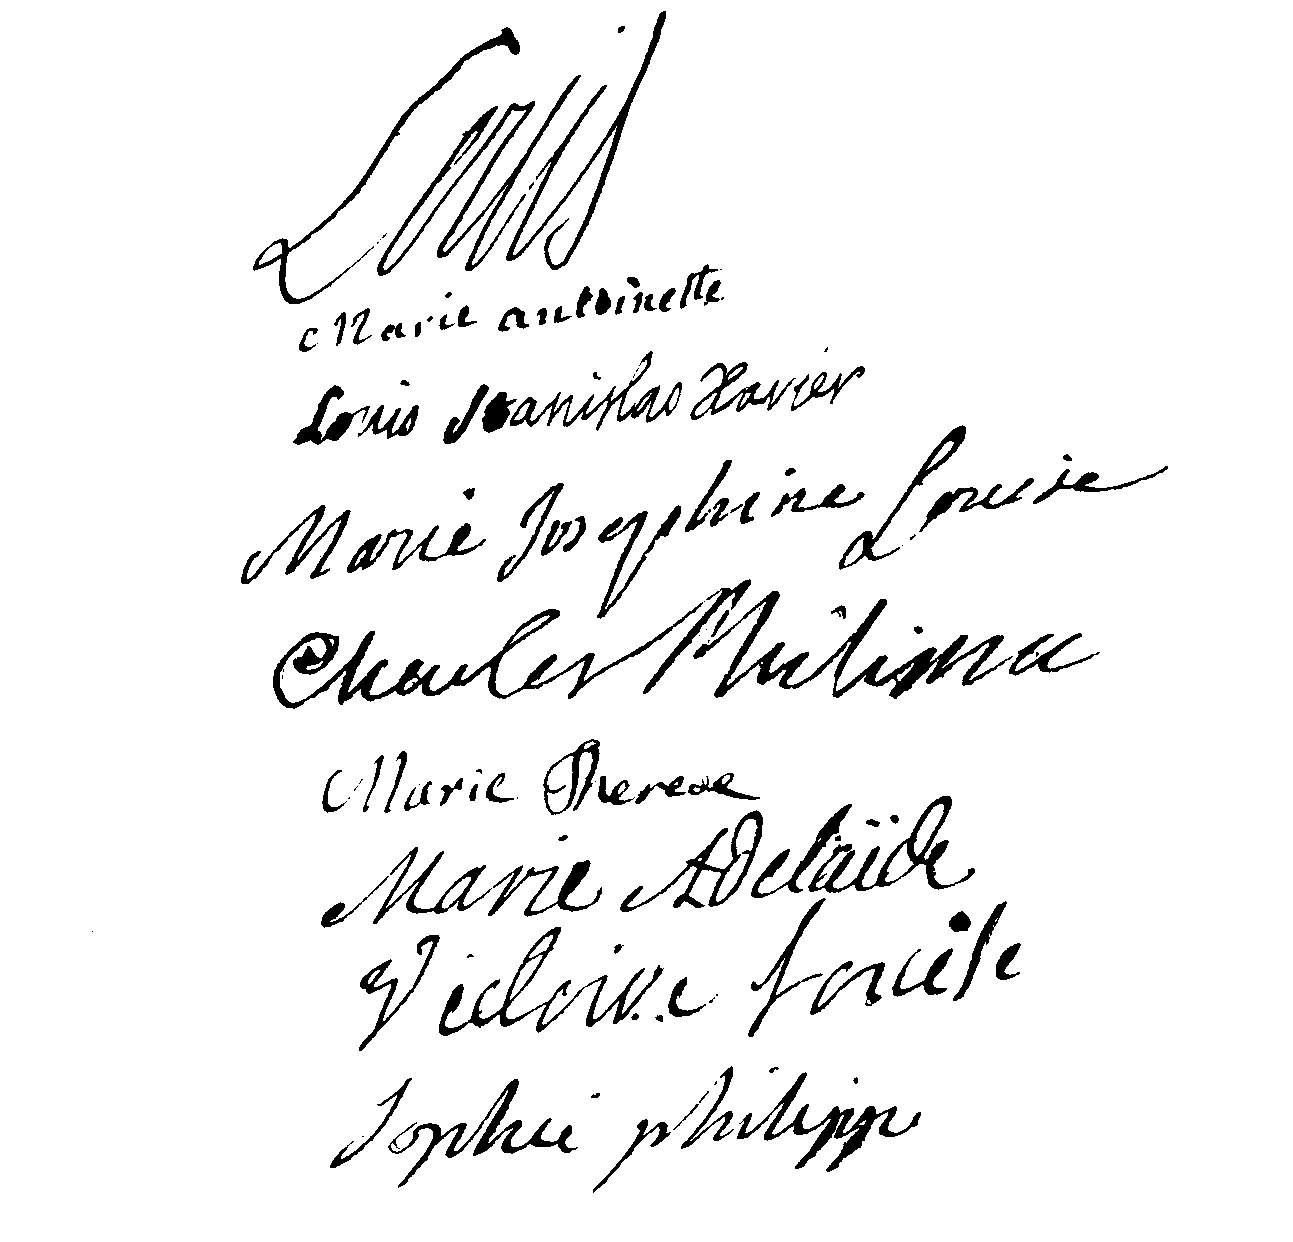 Louis
Marie antoinette
Louis Stanislas Xavier
Marie Josephine Louise
Charles Philippe
Marie Therese
Marie Adelaïde
Victoire Louise
Sophie philipp